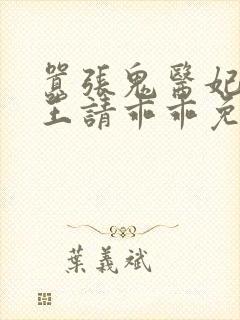 囂張鬼醫妃
王請乖乖免
葉義斌